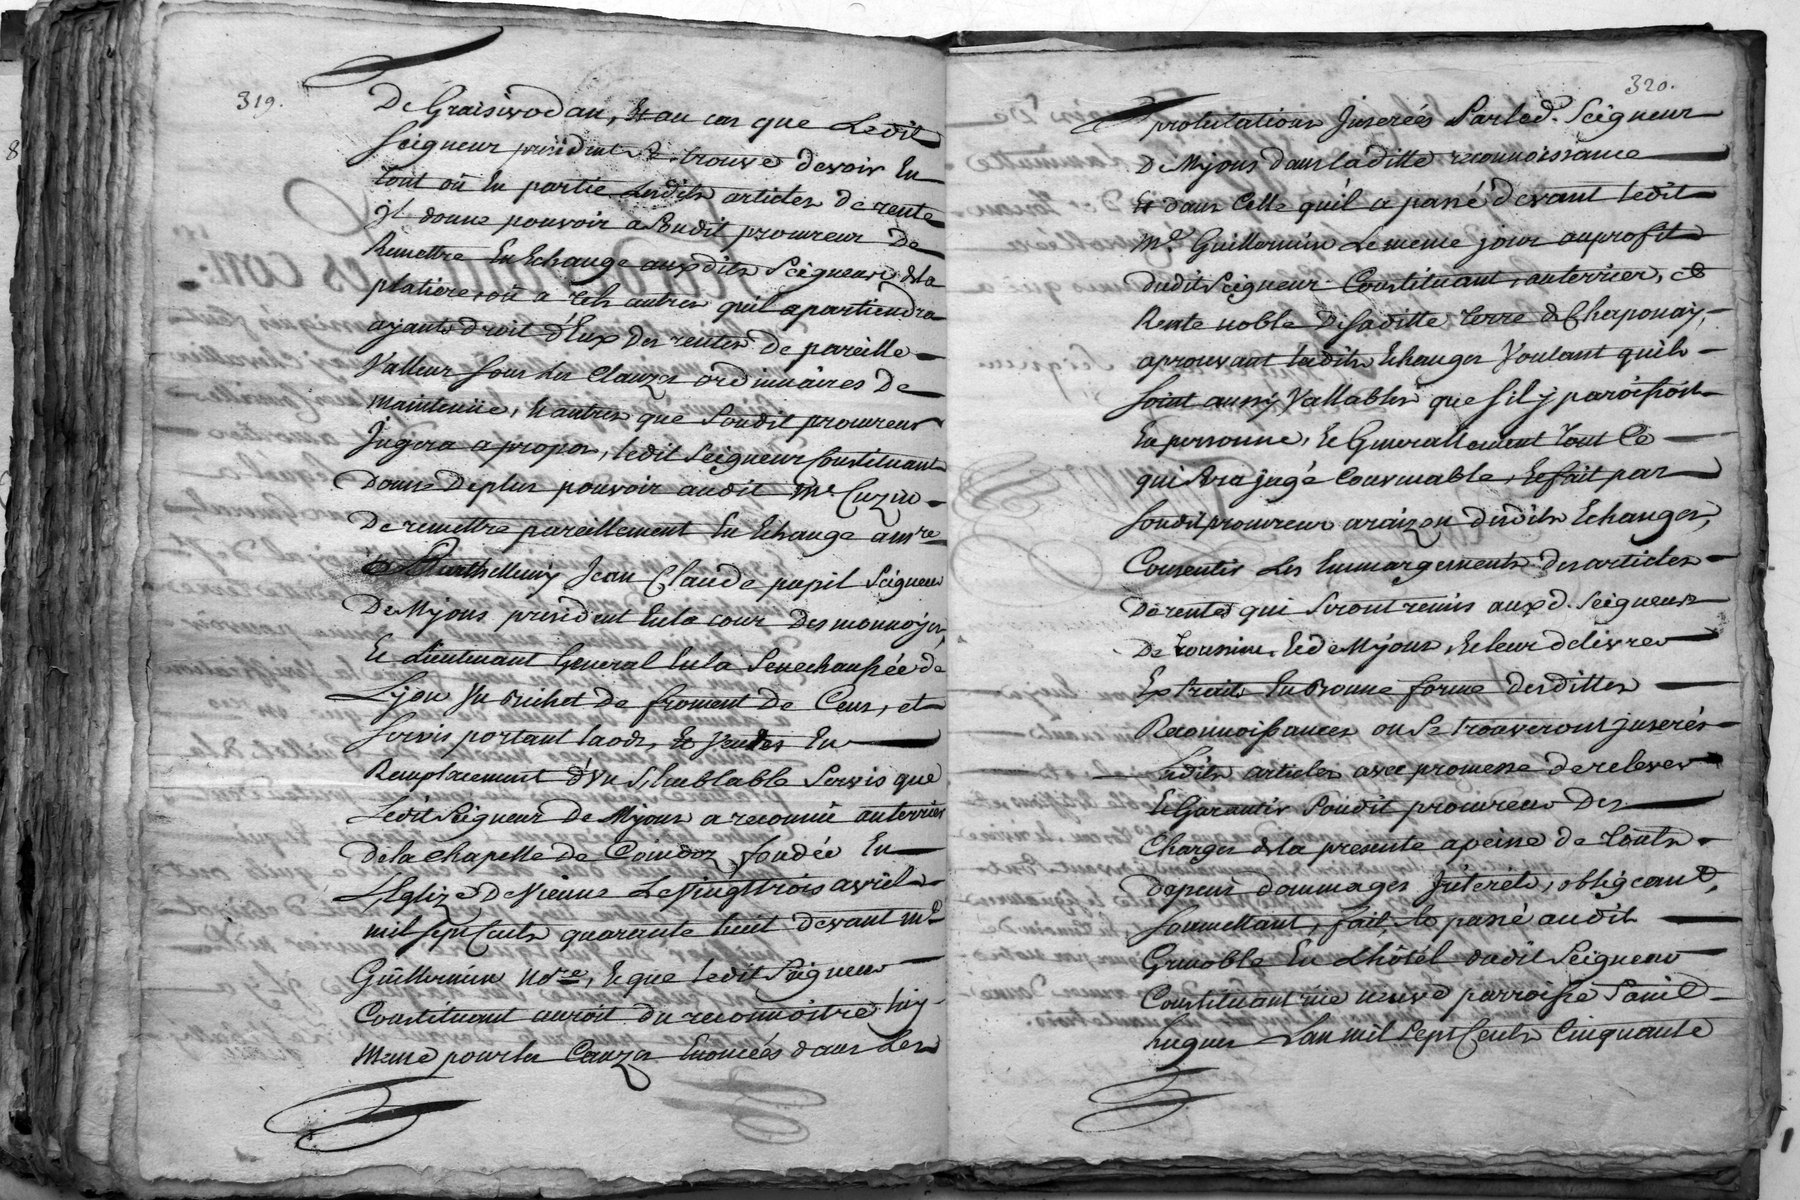 319.
De Graisivodan, Et au cas que Ledit
Seigneur président Se trouve devoir En
tout où En partie Lesdits articles de rente
jl donne pouvoir a Sondit procureur De
Remettre En Echange auxdits Seigneurs de la
platiere, où a tels autres qu'il apartiendra
ayants droit d'Eux Des rentes de pareille
Valleur sous Les Clauzes ordinnaires De
maintenüe, Et autres que Sondit procureur
Jugera a propos, ledit Seigneur Constituant
Donne Deplus pouvoir audit Me Cuzin
De remettre pareillement En Echange a mre
Barthellemy Jean Claude pupil Seigneur
De Mÿons president En la cour Des monnoÿes,
Et Lieutenant General En la Senechaussée de
Lÿon Un Bichet de froment de Cens, et
Servis portant laods, Et Ventes En
Remplacement d'un Semblable Servis que
Ledit Seigneur De Mÿons a reconnû au terrier
De la chapelle de Coindoz fondée En
L'Eglize De Vienne Le Vingt trois avril
mil sept Cents quarante huit devant me
Guillermin nore, Et que ledit Seigneur
Constituant auroit du reconnoitre luy
Meme pour les Cauzes Enoncées dans Les
320.
protestations Jnserées Par led. Seigneur
De Mÿons dans laditte reconnoissance
Et dans Celle qu'il a passé devant ledit
Me Guillermin Le meme jour au profit
dudit Seigneur Constituant, au terrier, et
Rente noble De Saditte terre de Chaponay,
aprouvant lesdits Echanges Voulant qu'ils
Soint aussy Vallables que S'il y paroissoit
En personne, Et Generallement tout Ce
qui Sera jugé Convenable, Et fait par
Sondit procureur a raizon desdits Echanges,
Consentir Les Emmargements des articles
De rentes qui Seront remis auxd. Seigneurs
De Et de Mÿons, Et leur delivrer
Extraits En Bonne forme Desdittes
Reconnoissances ou Se trouveront jnserés
Lesdits articles avec promesse de relever
Et Garantir Sondit procureur Des
Charges de la presente a peine de touts
Depens dommages Jnterêts, obligeant,
Soumettant, fait Et passé audit
Grenoble En L'hôtel dudit Seigneur
Constituant rüe neuve parroisse Saint
hugues L'an mil Sept Cents Cinquante